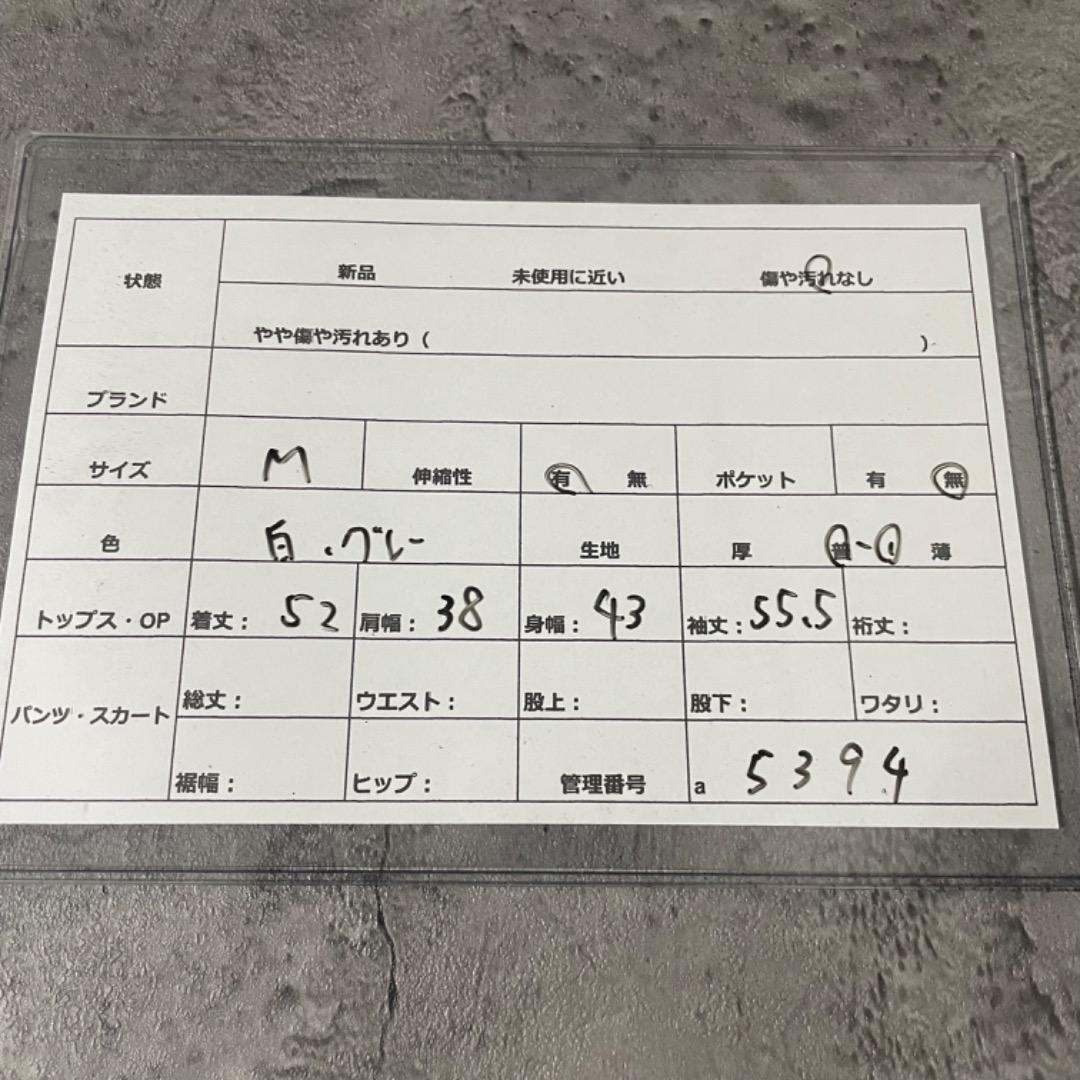 状態 新品 未使用に近い 傷や汚れなし
やや傷や汚れあり（ ）
ブランド
サイズ M 伸縮性 有 無 ポケット 有 無
色 白・グレー 生地 厚 普 薄
トップス・OP 着丈： 52 肩幅： 38 身幅： 43 袖丈： 55.5 裄丈：
パンツ・スカート 総丈： ウエスト： 股上： 股下： ワタリ：
裾幅： ヒップ： 管理番号 a 5394